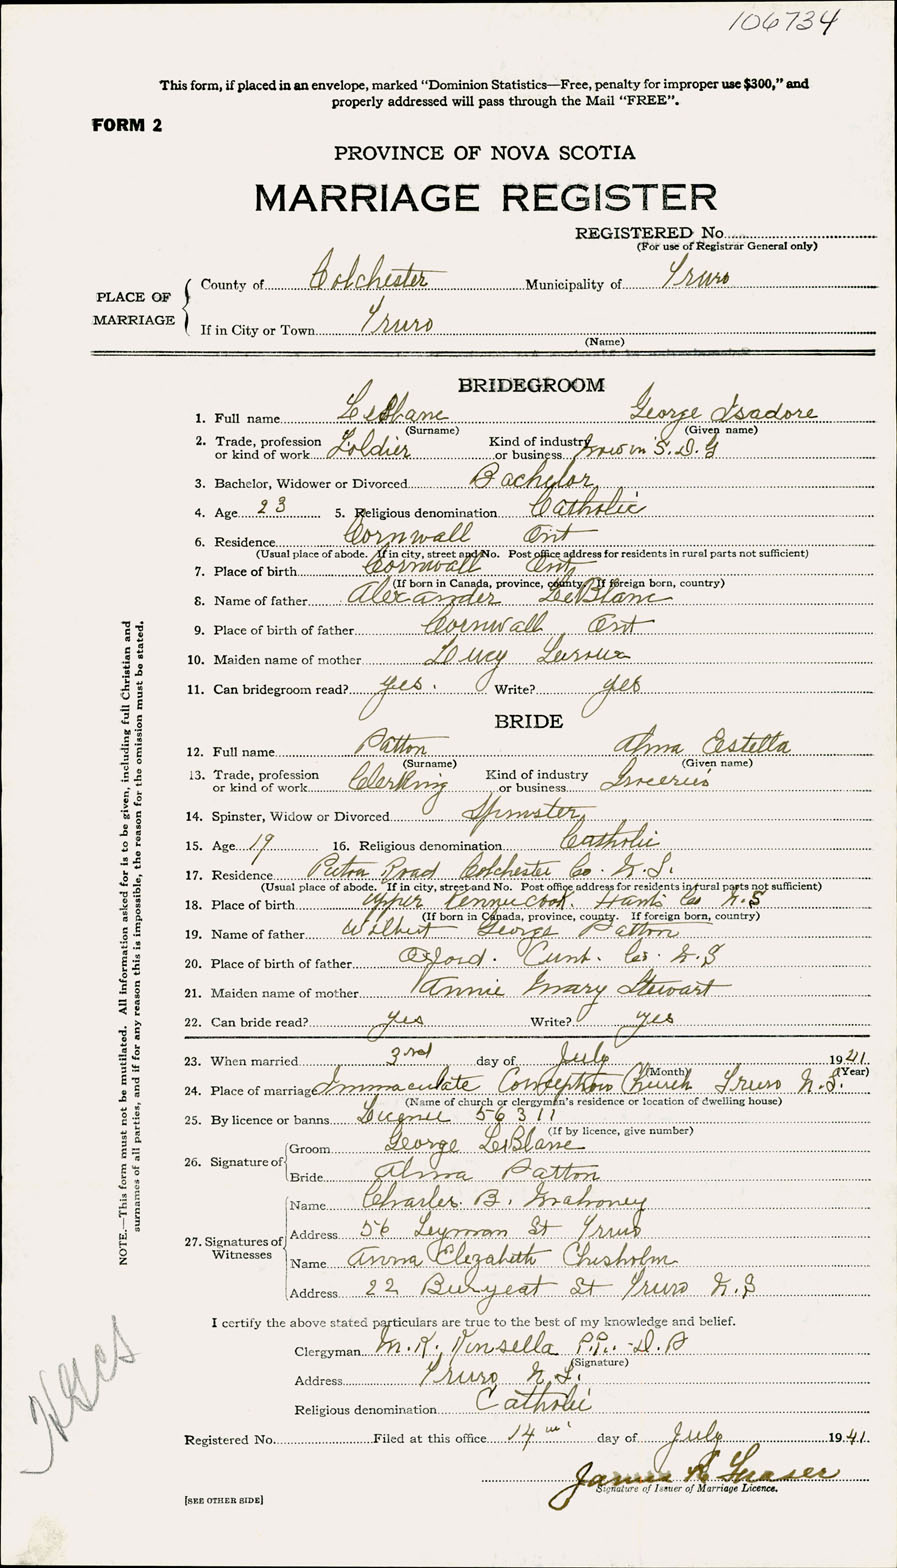 106734
This form, if placed in an envelope, marked "Dominion Statistics—Free, penalty for improper use $300," and
properly addressed will pass through the Mail "FREE".
FORM 2
PROVINCE OF NOVA SCOTIA
MARRIAGE REGISTER
REGISTERED No.
(For use of Registrar General only)
PLACE OF MARRIAGE
County of Colchester Municipality of Truro
If in City or Town Truro
(Name)
BRIDEGROOM
1. Full name LeBlanc George Isadore
(Surname) (Given name)
2. Trade, profession or kind of work Soldier Kind of industry or business S.D.G
3. Bachelor, Widower or Divorced Bachelor
4. Age 23 5. Religious denomination Catholic
6. Residence Cornwall Ont
(Usual place of abode. If in city, street and No. Post office address for residents in rural parts not sufficient)
7. Place of birth Cornwall Ont
(If born in Canada, province, county. If foreign born, country)
8. Name of father Alexander LeBlanc
9. Place of birth of father Cornwall Ont
10. Maiden name of mother Lucy Leroux
11. Can bridegroom read? yes. Write? yes
BRIDE
12. Full name Patton Alma Estella
(Surname) (Given name)
13. Trade, profession or kind of work Clerking Kind of industry or business Groceries
14. Spinster, Widow or Divorced Spinster
15. Age 19 16. Religious denomination Catholic
17. Residence Road Colchester Co. N.S.
(Usual place of abode. If in city, street and No. Post office address for residents in rural parts not sufficient)
18. Place of birth Upper Kennetcook. Hants Co N.S
(If born in Canada, province, county. If foreign born, country)
19. Name of father Wilbert George Patton
20. Place of birth of father Oxford. Cumb. Co. N.S
21. Maiden name of mother Annie Mary Stewart
22. Can bride read? yes Write? yes
23. When married 3rd day of July 1941
(Month) (Year)
24. Place of marriage Immaculate Conception Church Truro N.S.
(Name of church or clergyman's residence or location of dwelling house)
25. By licence or banns License 56311
(If by licence, give number)
26. Signature of
Groom George LeBlanc
Bride Alma Patton
27. Signatures of Witnesses
Name Charles B. Mahoney
Address 56 Leyman St Truro
Name Anna Elezabeth Chisholm
Address 22 St Truro N.S
I certify the above stated particulars are true to the best of my knowledge and belief.
Clergyman M.K. Kinsella P.P. - D.A
(Signature)
Address Truro N.S.
Religious denomination Catholic
Registered No. Filed at this office 14 day of July 1941
James Fraser
Signature of Issuer of Marriage Licence.
[SEE OTHER SIDE]
NOTE.—This form must not be mutilated. All information asked for is to be given, including full Christian and
surnames of all parties, and if for any reason this is impossible, the reason for the omission must be stated.